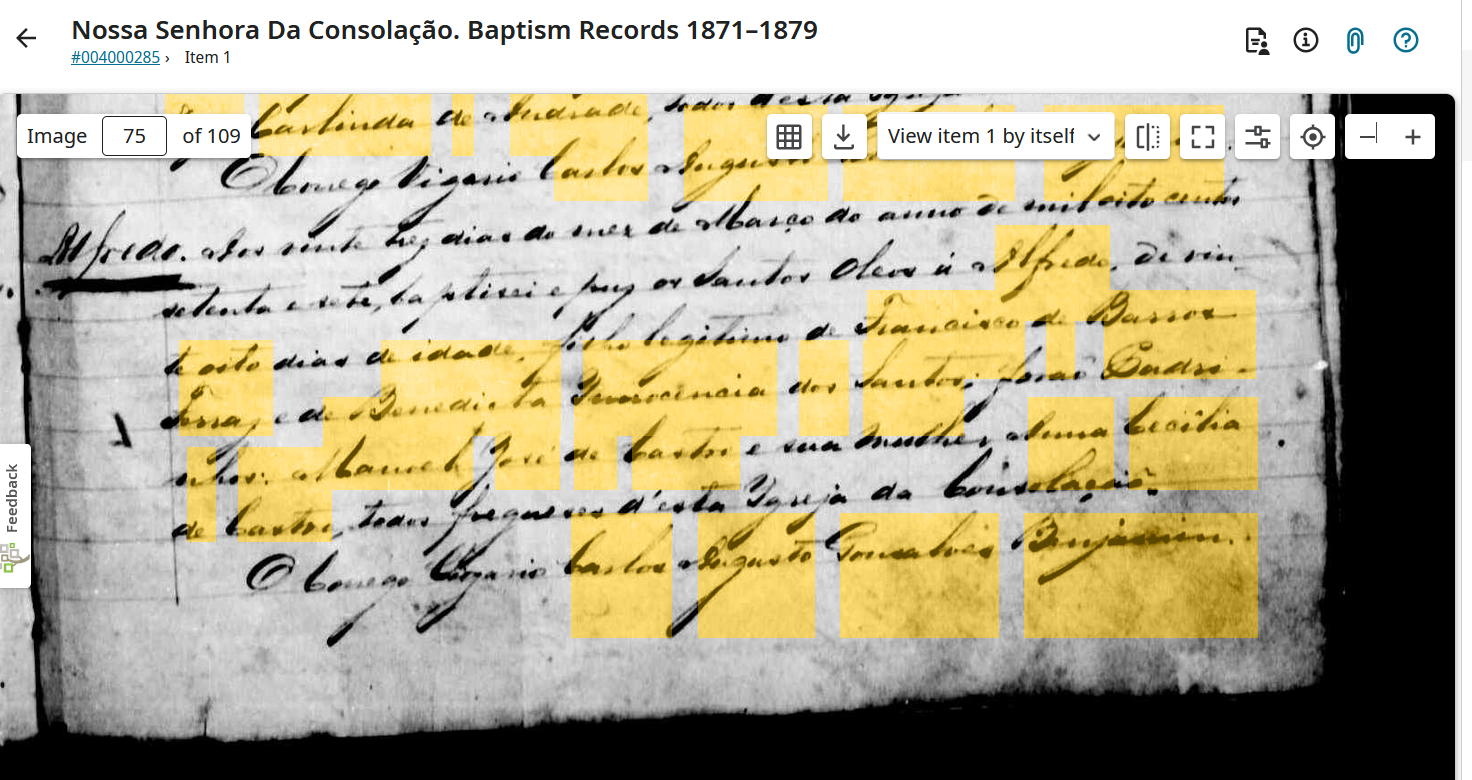 Nossa Senhora Da Consolação. Baptism Records 1871–1879
#004000285 › Item 1
Image 75 of 109
View item 1 by itself
Feedback
Carlinda de Andrade, todos desta
O Conego Vigario Carlos Augusto
Alfredo. Aos vinte trez dias do mez de Março do anno de mil oito centos
setenta e sete, baptisei e puz os Santos Oleos á Alfredo, de vin
te oito dias de idade, filho legitimo de Francisco de Barros
Ferraz, e de Benedicta Innocencia dos Santos; forão Padri-
nhos: Manoel José de Castro e sua mulher Anna Cecilia
de Castro, todos freguezes d'esta Igreja da Consolação.
O Conego Vigario Carlos Augusto Gonsalves Benjamim.